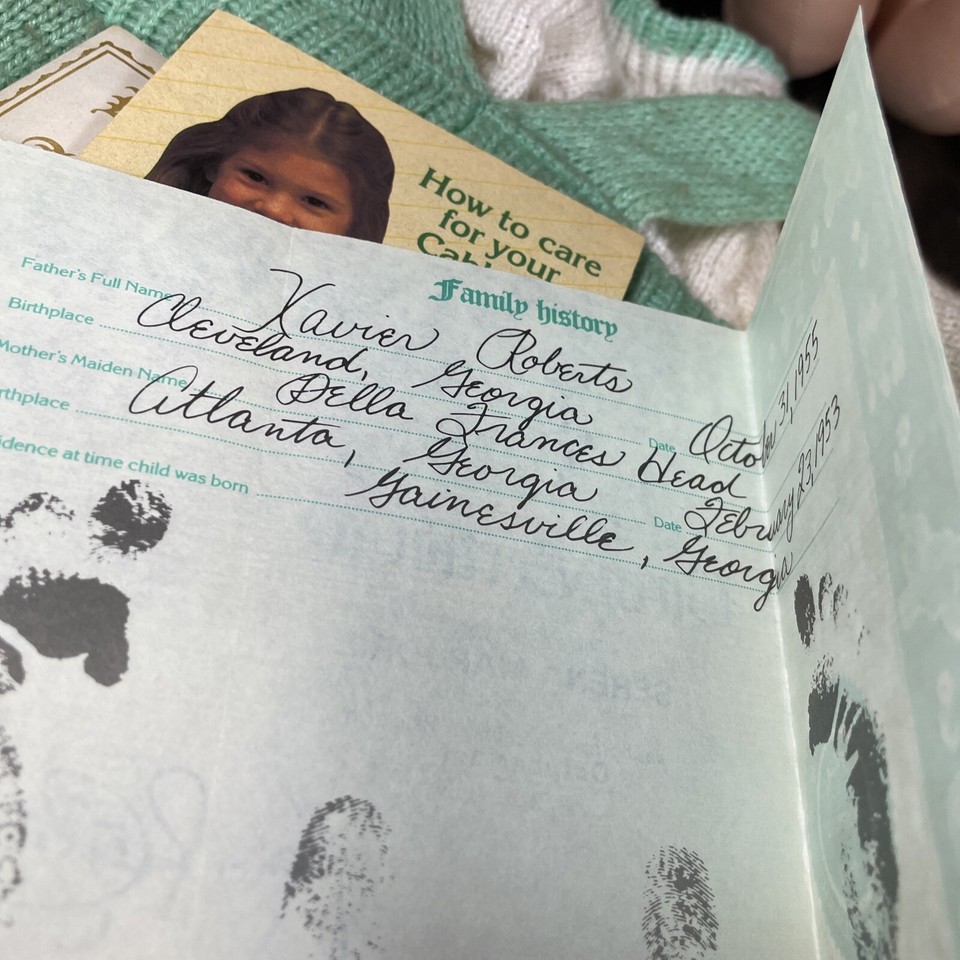 How to care
for your
Family history
Father's Full Name Xavier Roberts
Birthplace Cleveland, Georgia Date October 31, 1955
Mother's Maiden Name Della Frances Head
rthplace Atlanta, Georgia Date February 23, 1953
idence at time child was born Gainesville, Georgia